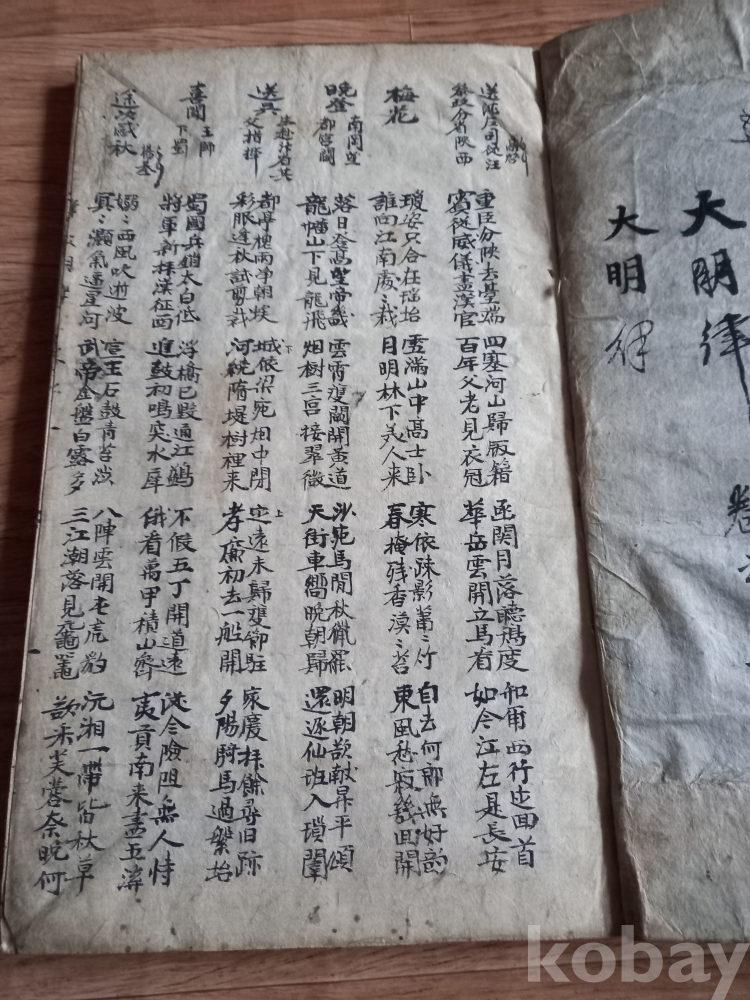 大明律
大明律
卷
送沈左司從汪
參政分省陝西
重臣分陝去臺端
賓從威儀盡漢官
四塞河山歸版籍
百年父老見衣冠
函関月落聽鷄度
華岳雲開立馬看
知爾西行定回首
如今江左是長安
梅花
瓊姿只合在瑤台
誰向江南處〻栽
雪滿山中高士卧
月明林下美人來
寒依疎影蕭〻竹
春掩残香漠〻苔
自去何郎無好韵
東風愁寂幾回開
晚登
南岡望
都宮闕
落日登高望帝畿
龍蟠山下見龍飛
雲霄雙闕開黃道
烟樹三宮接翠微
沙苑馬閒秋獵罷
天街車鬧晚朝歸
明朝欲献昇平頌
還逐仙班入瑣闈
都亭槐雨浄朝埃
彩服逢秋試剪裁
城依梁苑烟中閉
河繞隋堤樹裡來
定遠未歸雙節駐
孝廉初去一船開
家慶拜餘尋旧跡
夕陽騎馬過繁台
喜聞
王師
下蜀
蜀國兵銷太白低
將軍新拜漢征西
浮橋已毀通江鷁
進鼓初鳴突水犀
不假五丁開道遠
俄看萬甲積山齊
從今險阻無人恃
夷貢南來盡五溪
途次感秋
楊基
嫋〻西風吹逝波
冥〻灝氣逼星河
宣王石鼓青苔澁
武帝金盤白露多
八陣雲開屯虎豹
三江潮落見黿鼉
沅湘一帶皆秋草
欲采芙蓉奈晚何
kobay